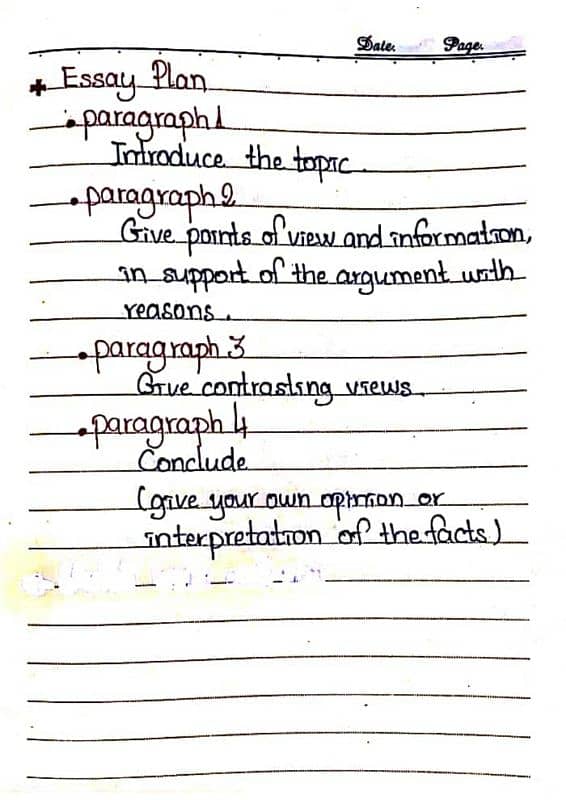 Date. Page.
+ Essay Plan
• paragraph 1
Introduce the topic.
• paragraph 2
Give points of view and information,
in support of the argument with
reasons.
• paragraph 3
Give contrasting views.
• paragraph 4
Conclude
(give your own opinion or
interpretation of the facts)